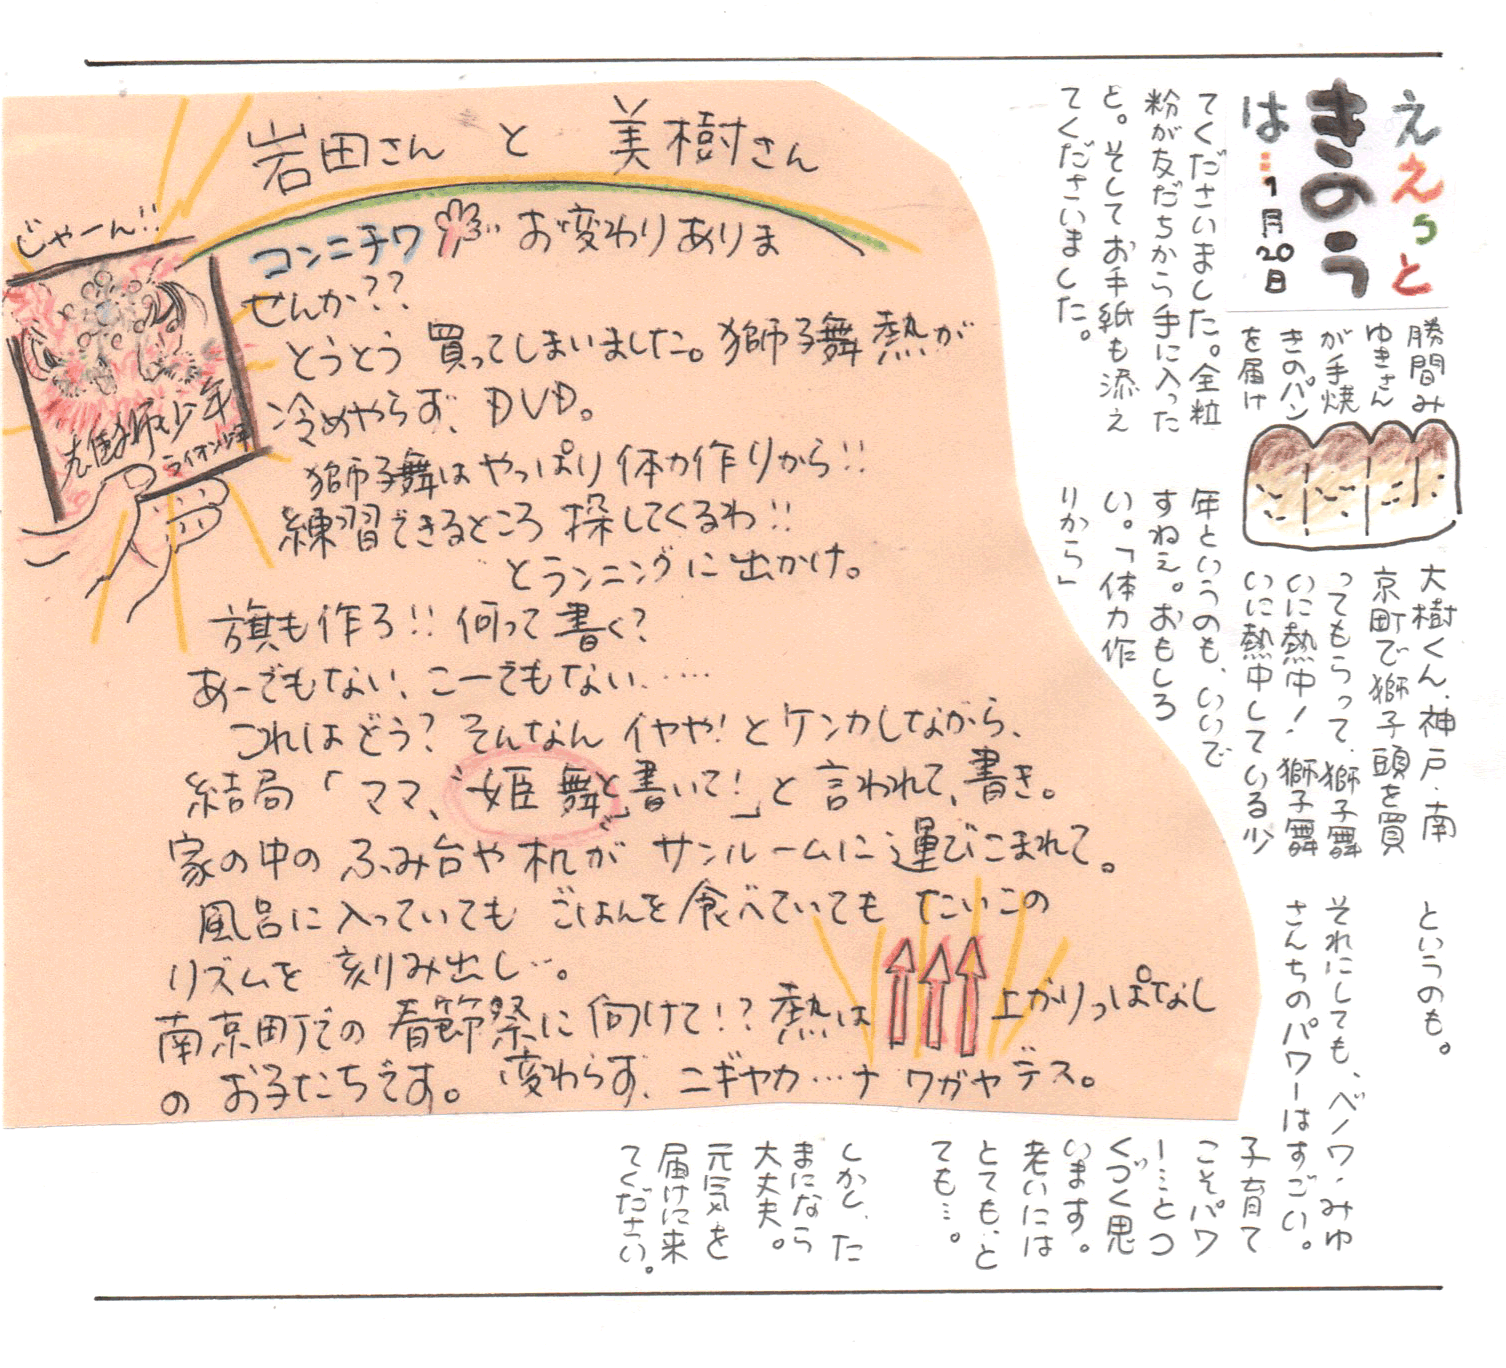 ええっと
きのう
は…1月20日
勝間み
ゆきさん
が手焼
きのパン
を届け
てくださいました。全粒
粉が友だちから手に入った
と。そしてお手紙も添え
てくださいました。
大樹くん、神戸・南
京町で獅子頭を買
ってもらって、獅子舞
いに熱中！獅子舞
いに熱中している少
年というのも、いいで
すねえ。おもしろ
い。「体力作
りから」
というのも。
それにしても、ベノワ・みゆ
さんちのパワーはすごい。
子育て
こそパワ
ー…とつ
くづく思
います。
老いには
とても、と
ても…。
しかし、た
まになら
大丈夫。
元気を
届けに来
てください。
岩田さん と 美樹さん
じゃーん!!
雄獅少年
ライオン少年
コンニチワ お変わりありま
せんか??
とうとう 買ってしまいました。獅子舞熱が
冷めやらず、DVD。
獅子舞はやっぱり体力作りから!!
練習できるところ 探してくるわ!!
とランニングに出かけ。
旗も作ろ!! 何って書く?
あーでもない、こーでもない……
これはどう? そんなん イヤや! とケンカしながら、
結局「ママ、"姫舞"と書いて!」と言われて、書き。
家の中の ふみ台や 机が サンルームに運びこまれて。
風呂に入っていても ごはんを食べていても たいこの
リズムを 刻み出し…。
南京町での 春節祭に 向けて!? 熱は 上がりっぱなし
の お子たちです。 変わらず、ニギヤカ…ナ ワガヤデス。